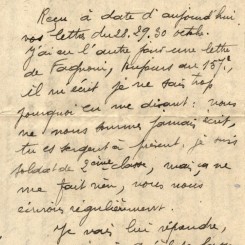 Reçu à date d'aujourd'hui
vos lettres du 28. 29. 30 octob.
J'ai eu l'autre jour une lettre
de Fagnoni, toujours au 15e,
il m'écrit je ne sais trop
pourquoi en me disant : nous
ne nous sommes jamais écrit,
tu es sergent à présent, je suis
soldat de 2ème classe, mais ça ne
me fait rien, nous nous
écrirons régulièrement.
Je vais lui répondre,